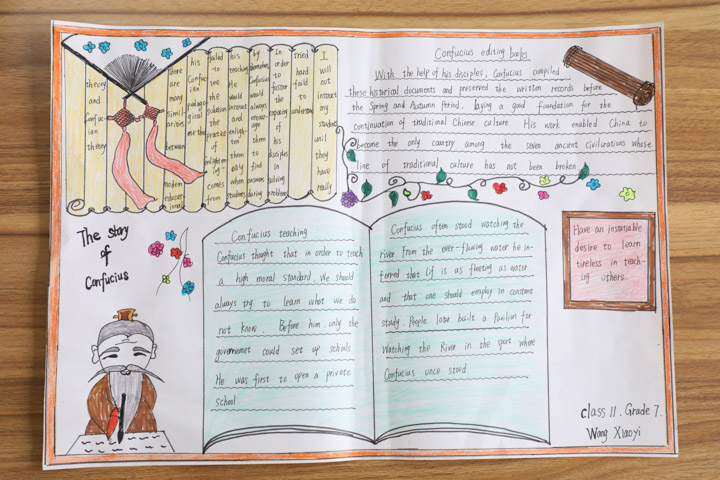 I will not instruct my students until they have really
tried hard faild to understand
In order to foster the capacity of his disciples in solving problems
by themselves Confucius would always encourage them to find answers during
his teaching He would instruct and enlighten them only when students
failed to see the solution the practice of enlightening comes from
his Confucian pedagogical method
There are many similarities between modern educational
theory and Confucian theory
Confucius editing books
With the help of his disciples, Confucius compiled
these historical documents and preserved the written records before
the Spring and Autumn Period, laying a good foundation for the
continuation of traditional Chinese culture. His work enabled China to
become the only country among the seven ancient civilizations whose
line of traditional culture has not been broken
The story
of
Confucius
Confucius teaching
Confucius thought that in order to teach
a high moral standard, We should
always try to learn what we do
not know. Before him, only the
governmenet could set up schools
He was first to open a private
school
Confucius often stood watching the
river. From the ever-flawing water he in-
ferred that Lif is as floating as water
and that one should employ in constant
study. People later built a Pavilion for
Watching the River in the spot where
Confucius once stood
Have an instatiable
desire to learn
tireless in teach-
ing others.
class 11. Grade 7.
Wang Xiaoyi